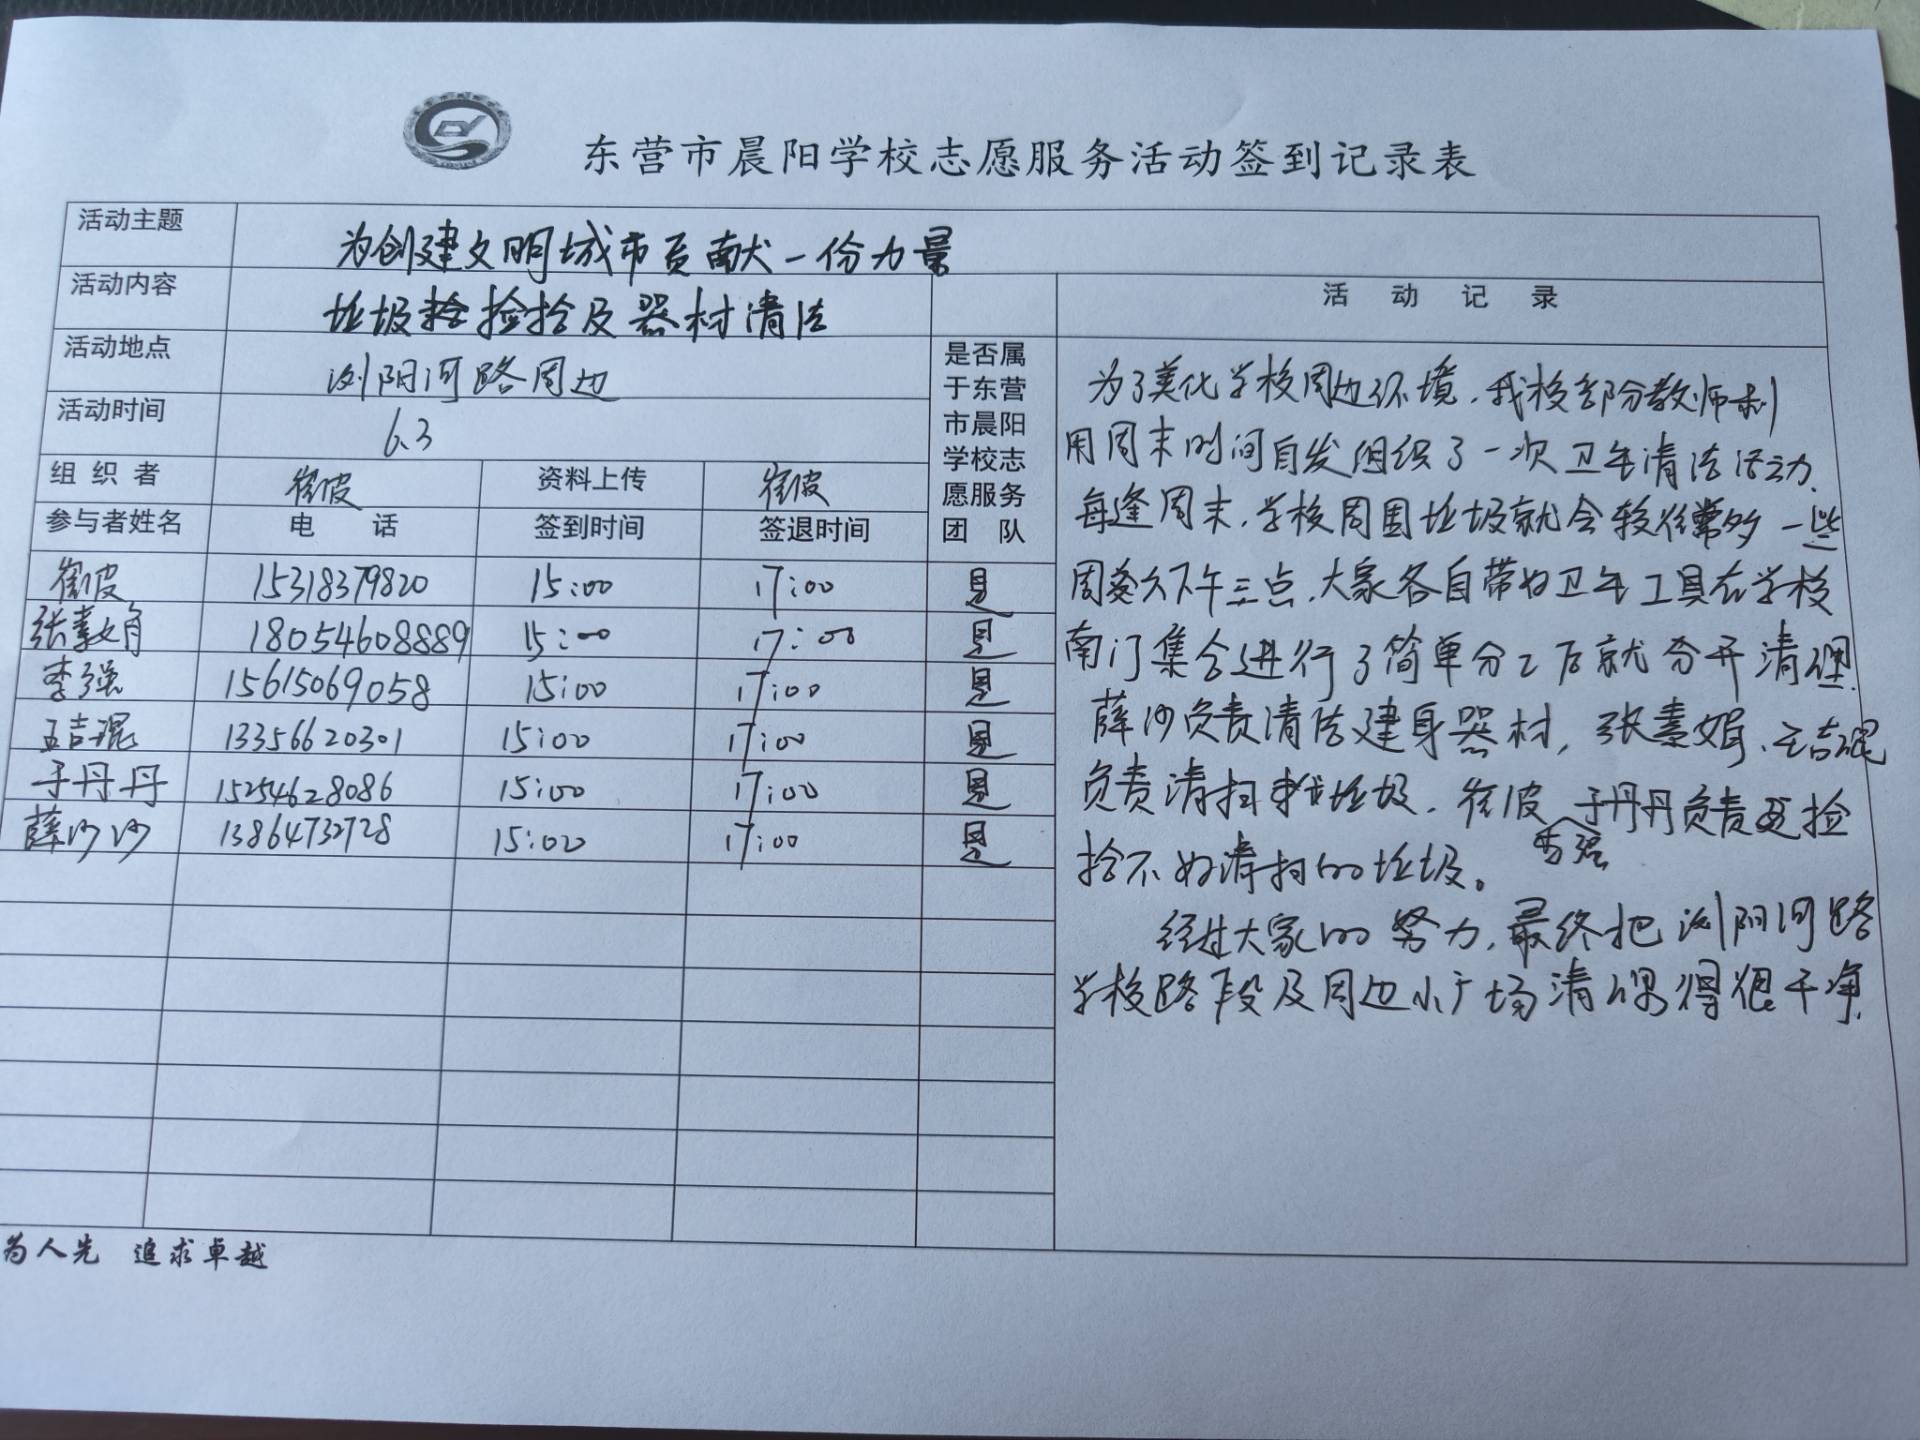 东营市晨阳学校志愿服务活动签到记录表
活动主题 为创建文明城市贡献一份力量
活动内容 垃圾捡拾及器材清洁 活 动 记 录
活动地点 浏阳河路周边
活动时间 6.3
组 织 者 崔波 资料上传 崔波
参与者姓名 电 话 签到时间 签退时间
是否属
于东营
市晨阳
学校志
愿服务
团 队
崔波 15318379820 15:00 17:00 是
张素娟 18054608889 15:00 17:00 是
李强 15615069058 15:00 17:00 是
王吉琨 13356620301 15:00 17:00 是
于丹丹 15254628086 15:00 17:00 是
薛沙沙 13864732728 15:00 17:00 是
为了美化学校周边环境,我校部分教师利
用周末时间自发组织了一次卫生清洁活动.
每逢周末,学校周围垃圾就会较往常多一些
周六下午三点,大家各自带好卫生工具在学校
南门集合进行了简单分工后就分开清理.
薛沙负责清洁建身器材,张素娟、王吉琨
负责清扫垃圾.崔波 李强 于丹丹负责捡
拾不好清扫的垃圾。
经过大家的努力,最终把浏阳河路
学校路段及周边小广场清理得很干净.
为人先 追求卓越